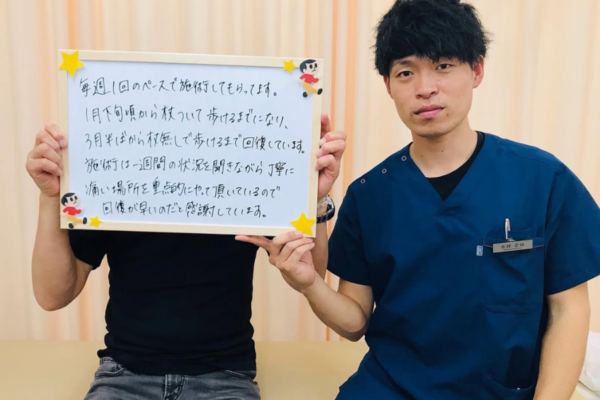 毎週1回のペースで施術してもらってます。
1月下旬頃から杖ついて歩けるまでになり、
3月半ばから杖無しで歩けるまで回復しています。
施術は一週間の状況を聞きながら丁寧に
痛い場所を重点的にやって頂いているので
回復が早いのだと感謝しています。